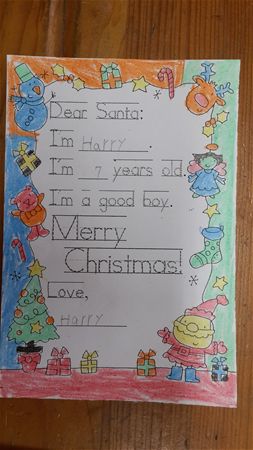 Dear Santa:
I'm Harry.
I'm 7 years old.
I'm a good boy.
Merry
Christmas!
Love,
Harry